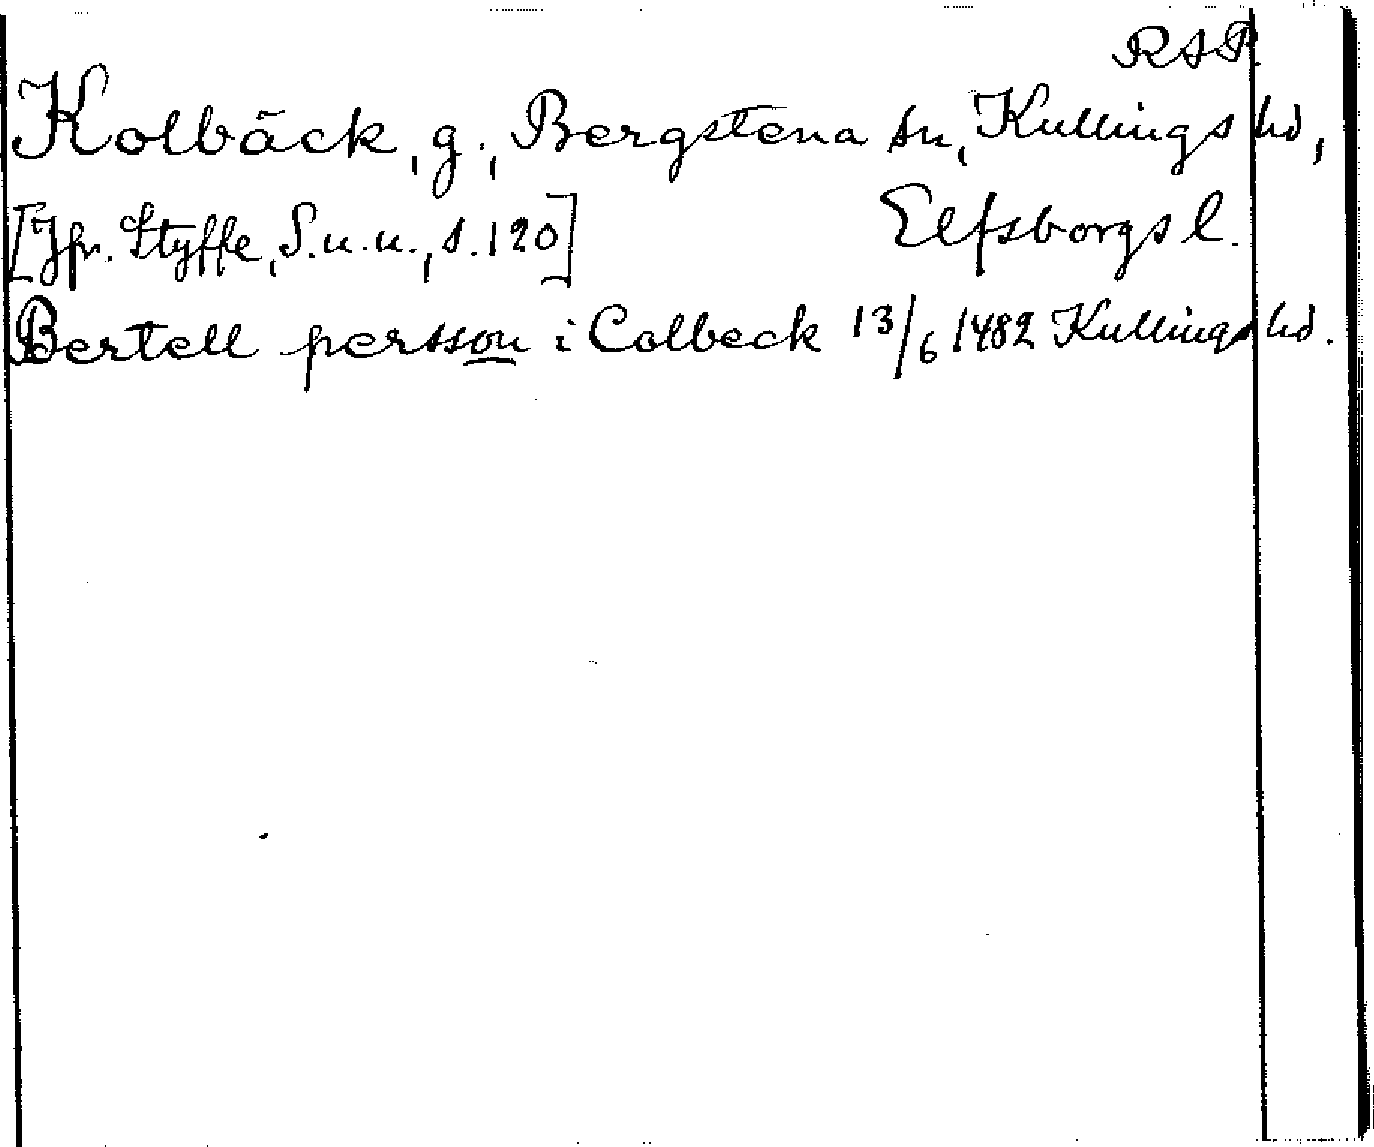 RAP.
Kolbäck, g., Bergstena sn, Kullings hd,
[Jfr. Styffe, S.u.u., s. 120] Elfsborgs l.
Bertell persson i Colbeck 13/6 1482 Kullings hd.